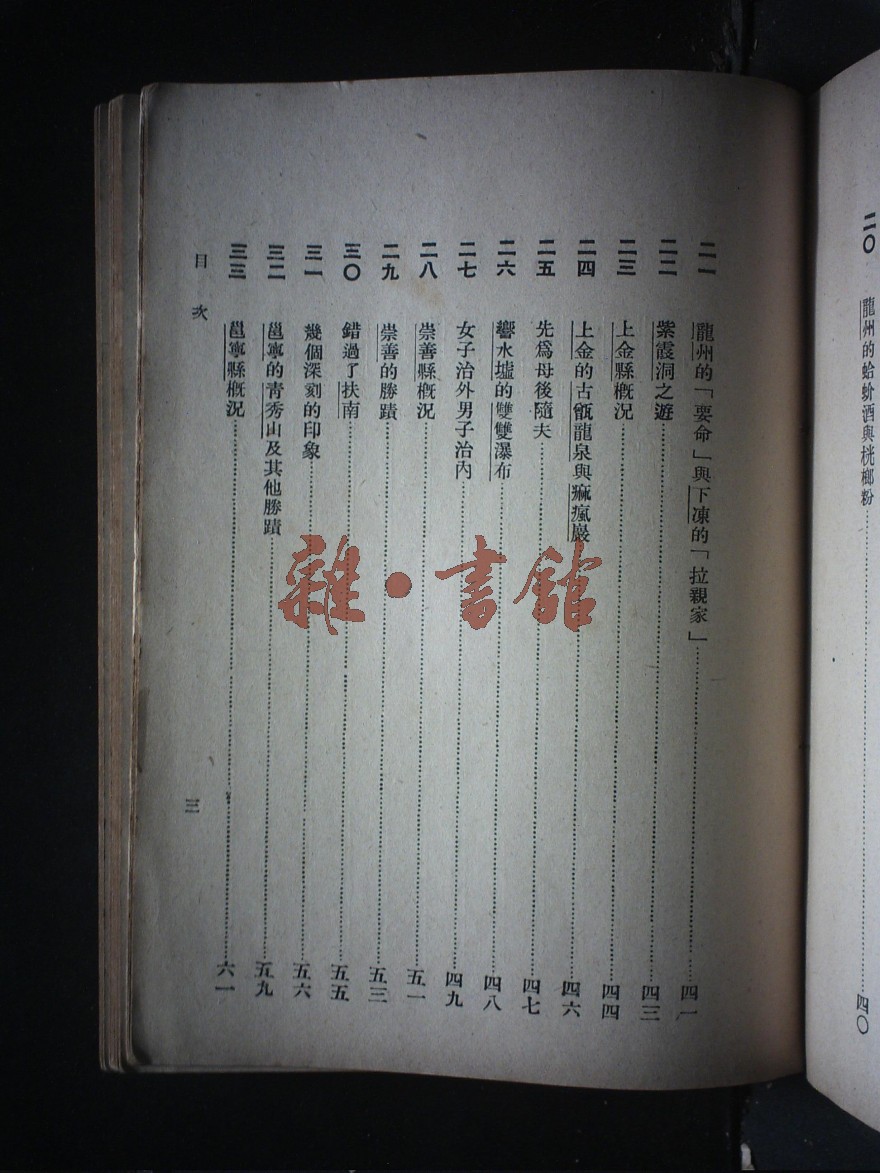 二〇 龍州的蛤蚧酒與桄榔粉 四〇
二一 龍州的「要命」與下凍的「拉親家」 四一
二二 紫霞洞之遊 四三
二三 上金縣概況 四四
二四 上金的古甑龍泉與痲瘋巖 四六
二五 先爲母後隨夫 四七
二六 響水墟的雙雙瀑布 四八
二七 女子治外男子治內 四九
二八 崇善縣概況 五一
二九 崇善的勝蹟 五三
三〇 錯過了扶南 五五
三一 幾個深刻的印象 五六
三二 邕寧的青秀山及其他勝蹟 五九
三三 邕寧縣概況 六一
目次 三
雜·書館